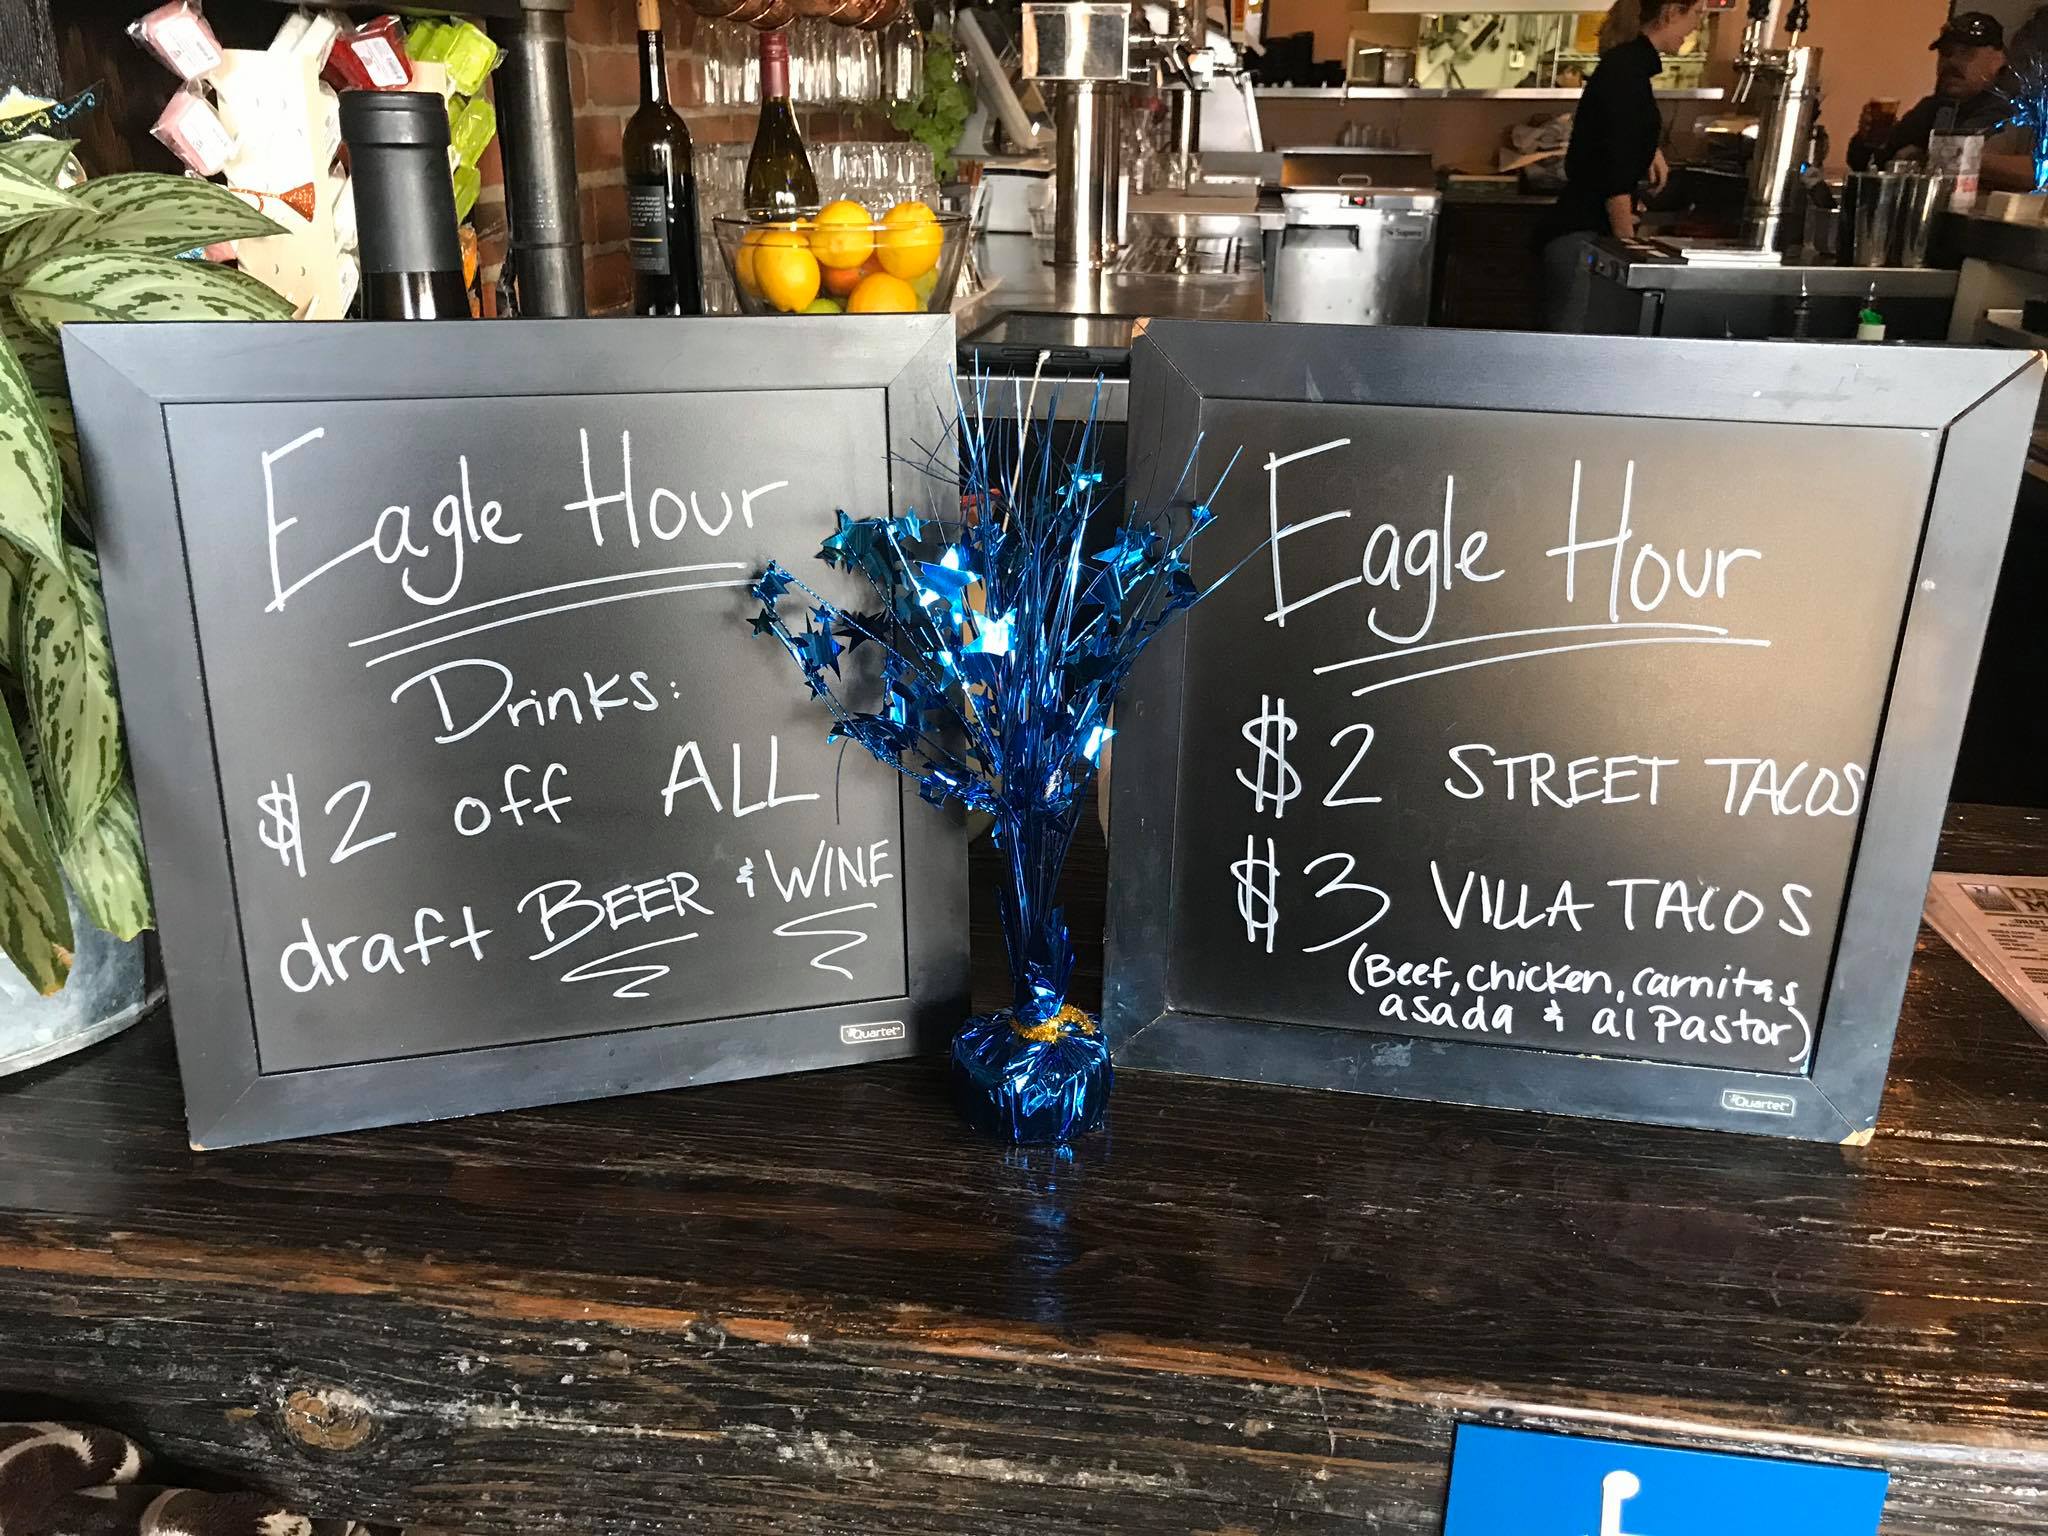 Eagle Hour
Drinks:
$2 off ALL
draft BEER & WINE
Quartet
Eagle Hour
$2 STREET TACOS
$3 VILLA TACOS
(Beef, chicken, carnitas
asada & al Pastor)
Quartet